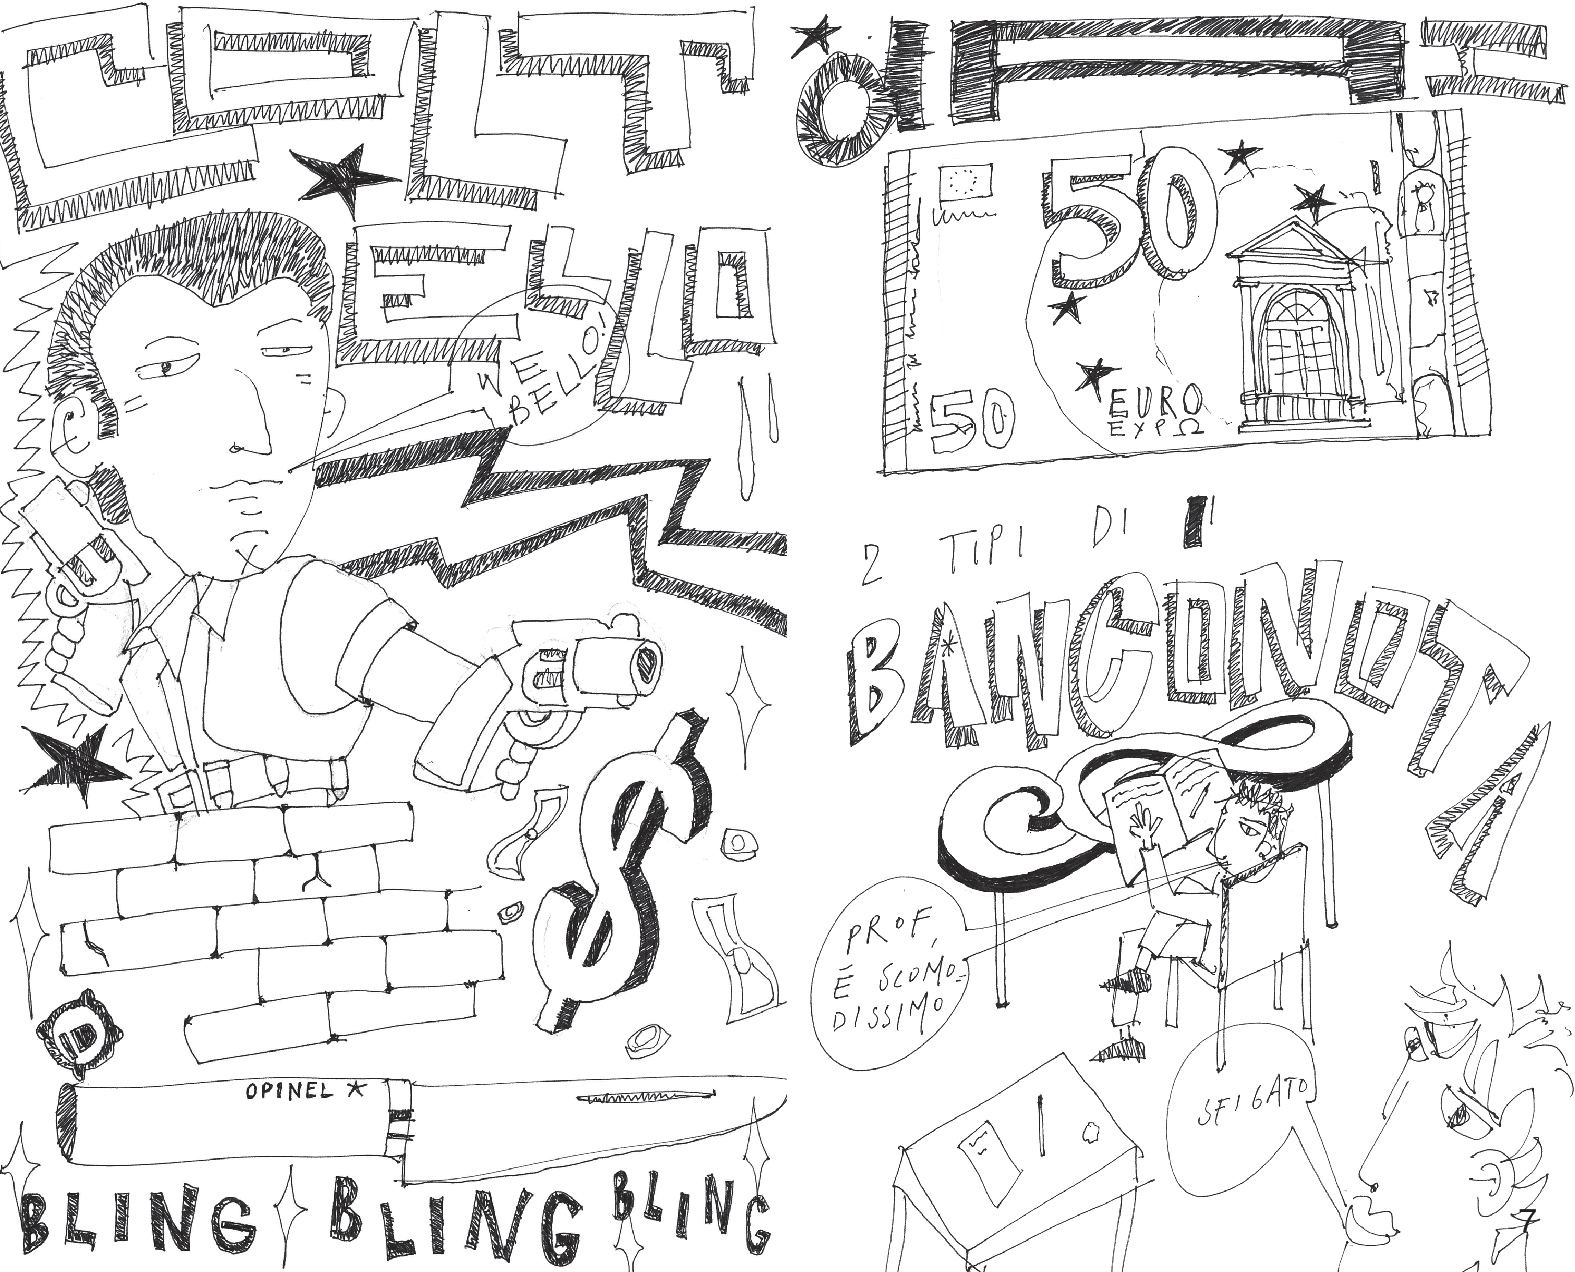 COLT
ELLO
WE
BELLO!
OPINEL ★
BLING BLING BLING
50
50
EURO
EXPΩ
2 TIPI DI
BANCONOTA
PROF,
È SCOMO=
DISSIMO
SFIGATO
7